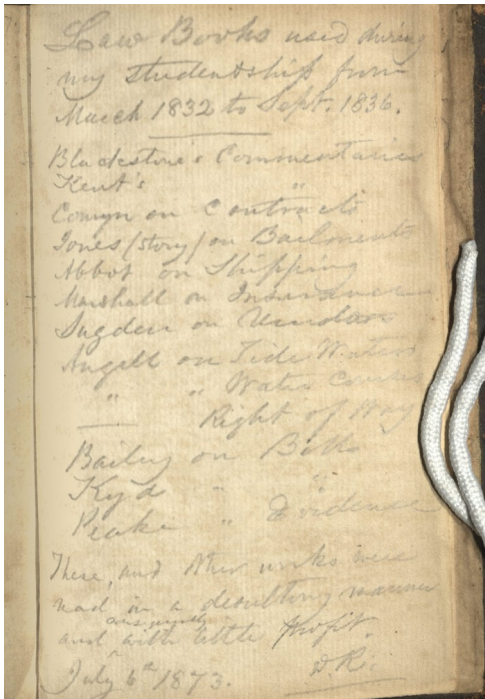 Law Books used during
my studentship from
March 1832 to Sept. 1836.
Blackstone's Commentaries
Kent's "
Comyn on Contracts
Jones (Story) on Bailments
Abbot on Shipping
Marshall on Insurance
Sugden on Vendors
Angell on Tide Waters
" " Water Courses
— Right of Way
Bailey on Bills
Kyd " "
Peake " Evidence
These, and other works were
read in a desultory manner
and with little profit.
July 6th 1873. D. R.